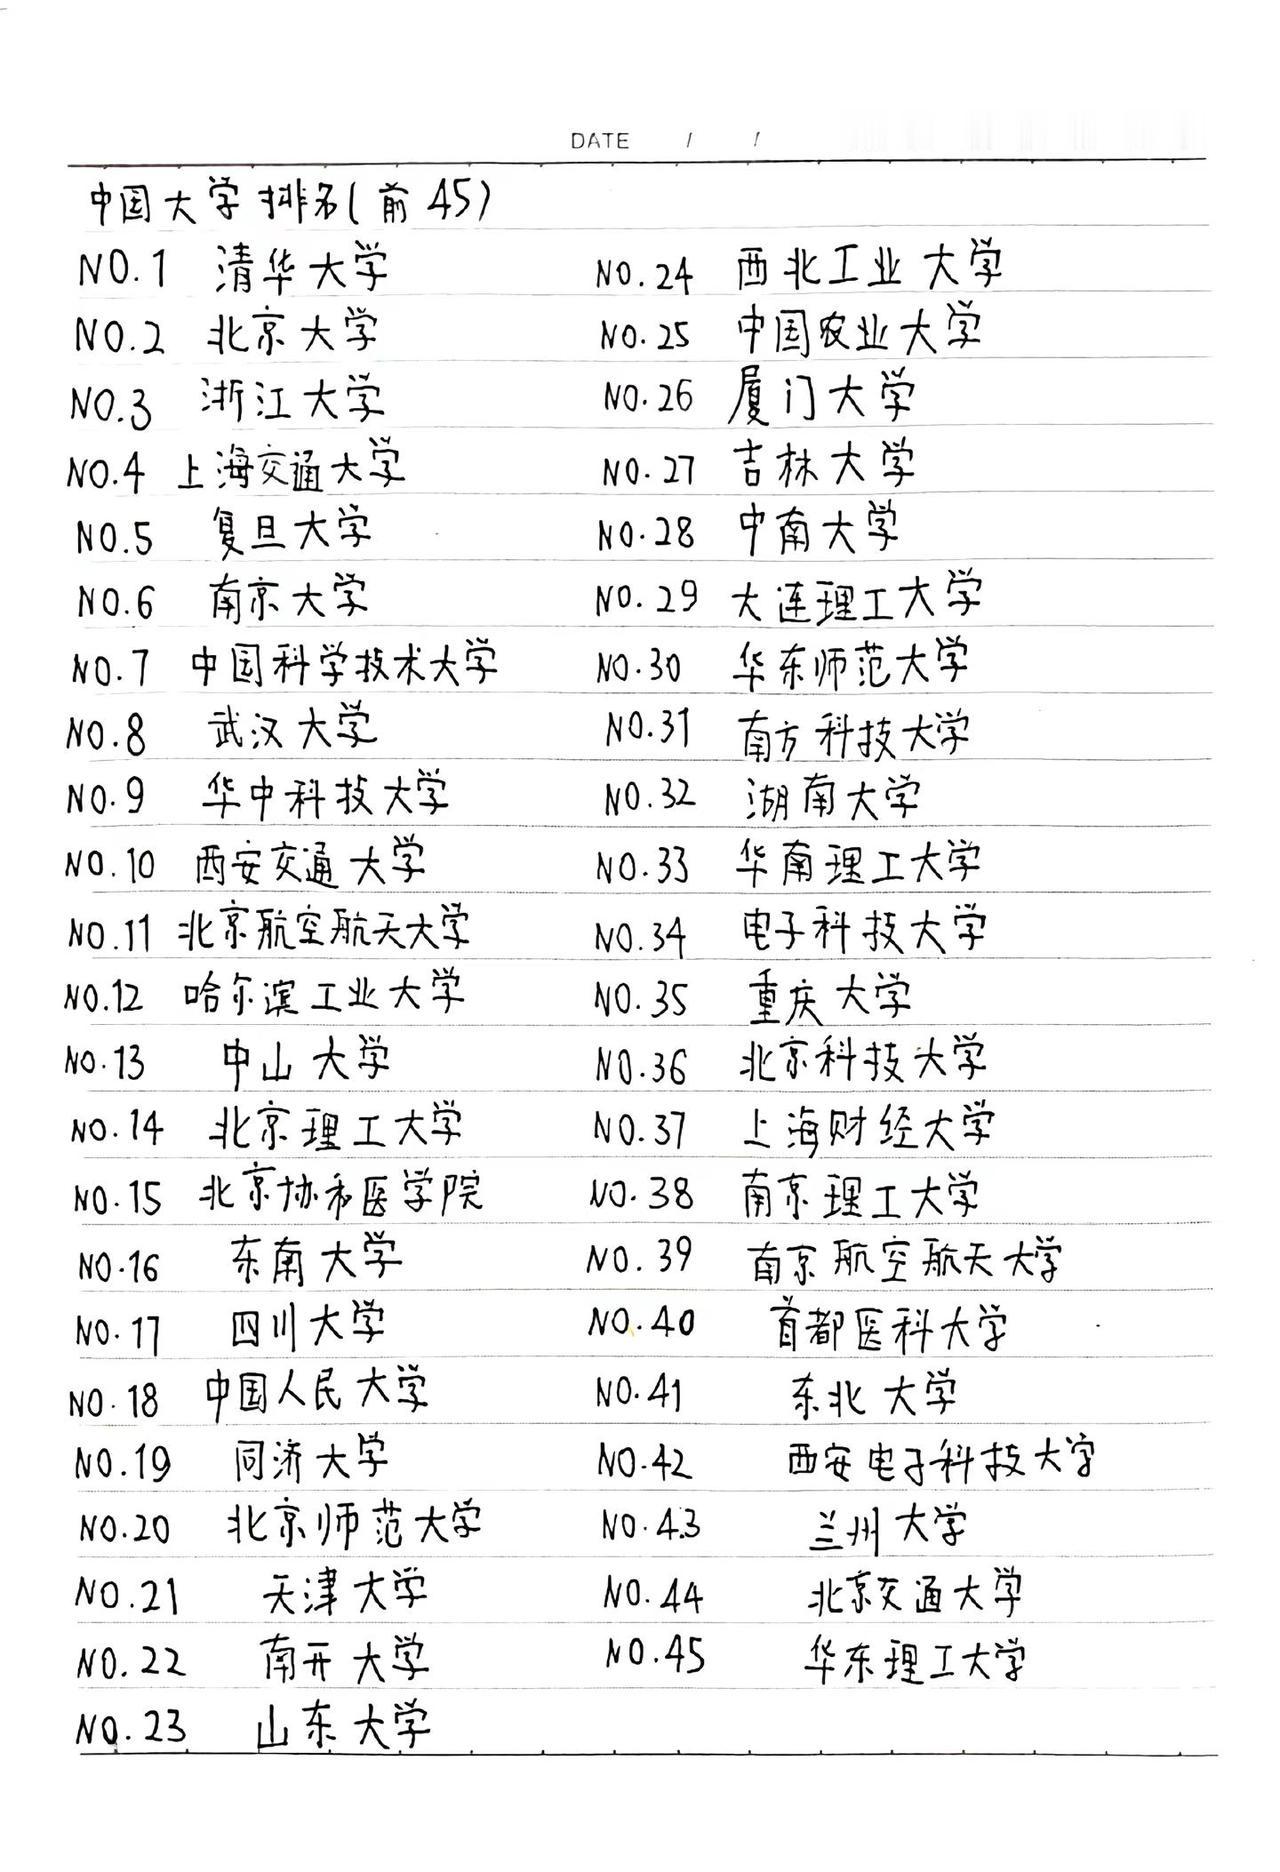 DATE / /
中国大学排名(前45)
NO.1 清华大学
NO.2 北京大学
NO.3 浙江大学
NO.4 上海交通大学
NO.5 复旦大学
NO.6 南京大学
NO.7 中国科学技术大学
NO.8 武汉大学
NO.9 华中科技大学
NO.10 西安交通大学
NO.11 北京航空航天大学
NO.12 哈尔滨工业大学
NO.13 中山大学
NO.14 北京理工大学
NO.15 北京协和医学院
NO.16 东南大学
NO.17 四川大学
NO.18 中国人民大学
NO.19 同济大学
NO.20 北京师范大学
NO.21 天津大学
NO.22 南开大学
NO.23 山东大学
NO.24 西北工业大学
NO.25 中国农业大学
NO.26 厦门大学
NO.27 吉林大学
NO.28 中南大学
NO.29 大连理工大学
NO.30 华东师范大学
NO.31 南方科技大学
NO.32 湖南大学
NO.33 华南理工大学
NO.34 电子科技大学
NO.35 重庆大学
NO.36 北京科技大学
NO.37 上海财经大学
NO.38 南京理工大学
NO.39 南京航空航天大学
NO.40 首都医科大学
NO.41 东北大学
NO.42 西安电子科技大学
NO.43 兰州大学
NO.44 北京交通大学
NO.45 华东理工大学